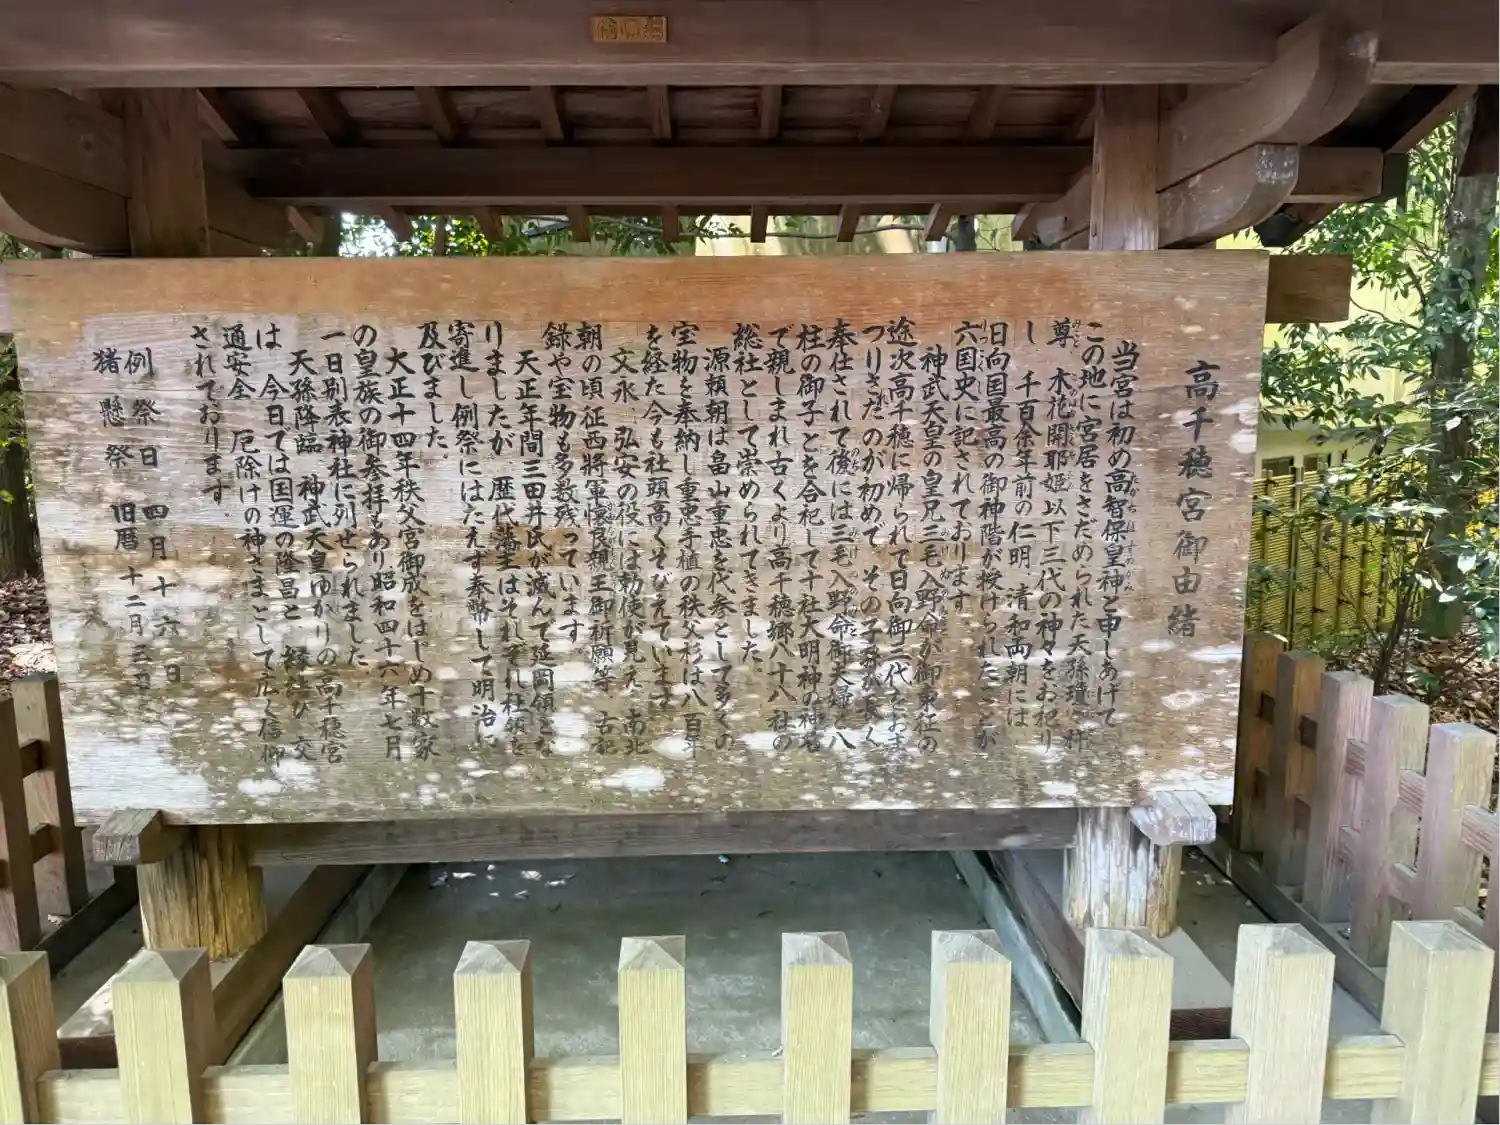 高千穂宮御由緒
当宮は初め高智保皇神と申しあげて
この地に宮居をさだめられた天孫瓊々杵
尊、木花開耶姫以下三代の神々をお祀り
し 千百余年前の仁明、清和両朝には
日向国最高の御神階が授けられたことが
六国史に記されております
神武天皇の皇兄三毛入野命が御東征の
途次高千穂に帰られて日向御三代をおま
つりさだのが初めで、その子孫が長く
奉仕されて後には三毛入野命御夫婦と八
柱の御子とを合祀して十社大明神の神名
で親しまれ古くより高千穂郷八十八社の
総社として崇められてきました
源頼朝は畠山重忠を代参として多くの
宝物を奉納し重忠手植の秩父杉は八百年
を経た今も社頭高くそびえています
文永、弘安の役には勅使が見え、南北
朝の頃征西将軍懐良親王御祈願等、古記
録や宝物も多数残っています
天正年間三田井氏が滅んで延岡領とな
りましたが、歴代藩主はそれぞれ社領を
寄進し例祭にはたえず奉幣して明治に
及びました、
大正十四年秩父宮御成をはじめ十数家
の皇族の御参拝もあり昭和四十六年七月
一日別表神社に列せられました
天孫降臨、神武天皇ゆかりの高千穂宮
は 今日では国運の隆昌と 縁結び 交
通安全 厄除けの神さまとして広く信仰
されております
例祭日 四月十六日
猪懸祭 旧暦十二月三日